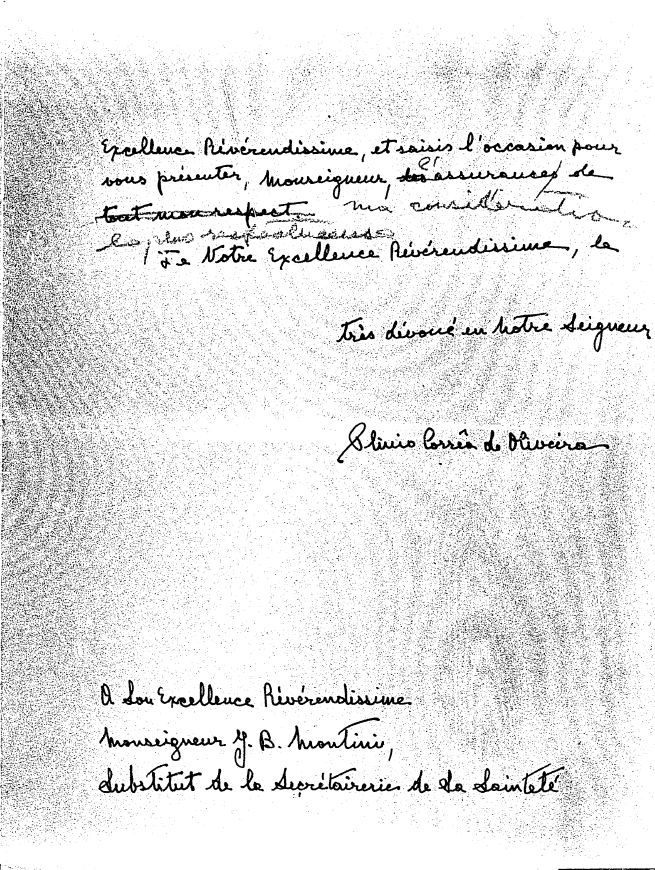 Excellence Révérendissime, et saisis l'occasion pour
vous présenter, Monseigneur, l'assurance de
tout mon respect ma considération
la plus respectueuse
de Votre Excellence Révérendissime, le
très dévoué en Notre Seigneur
Plinio Corrêa de Oliveira
A Son Excellence Révérendissime
Monseigneur J. B. Montini,
Substitut de la Secrétairerie de Sa Sainteté